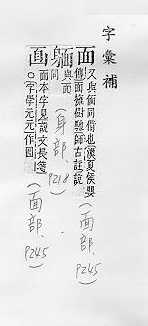 字彙補
面 又與偭同偝也漢夏侯嬰傳面雍樹馳師古註說
(面部、p245)
與面同
(身部、p218)
面本字見說文長箋○字學元元作圎
(面部、p245)